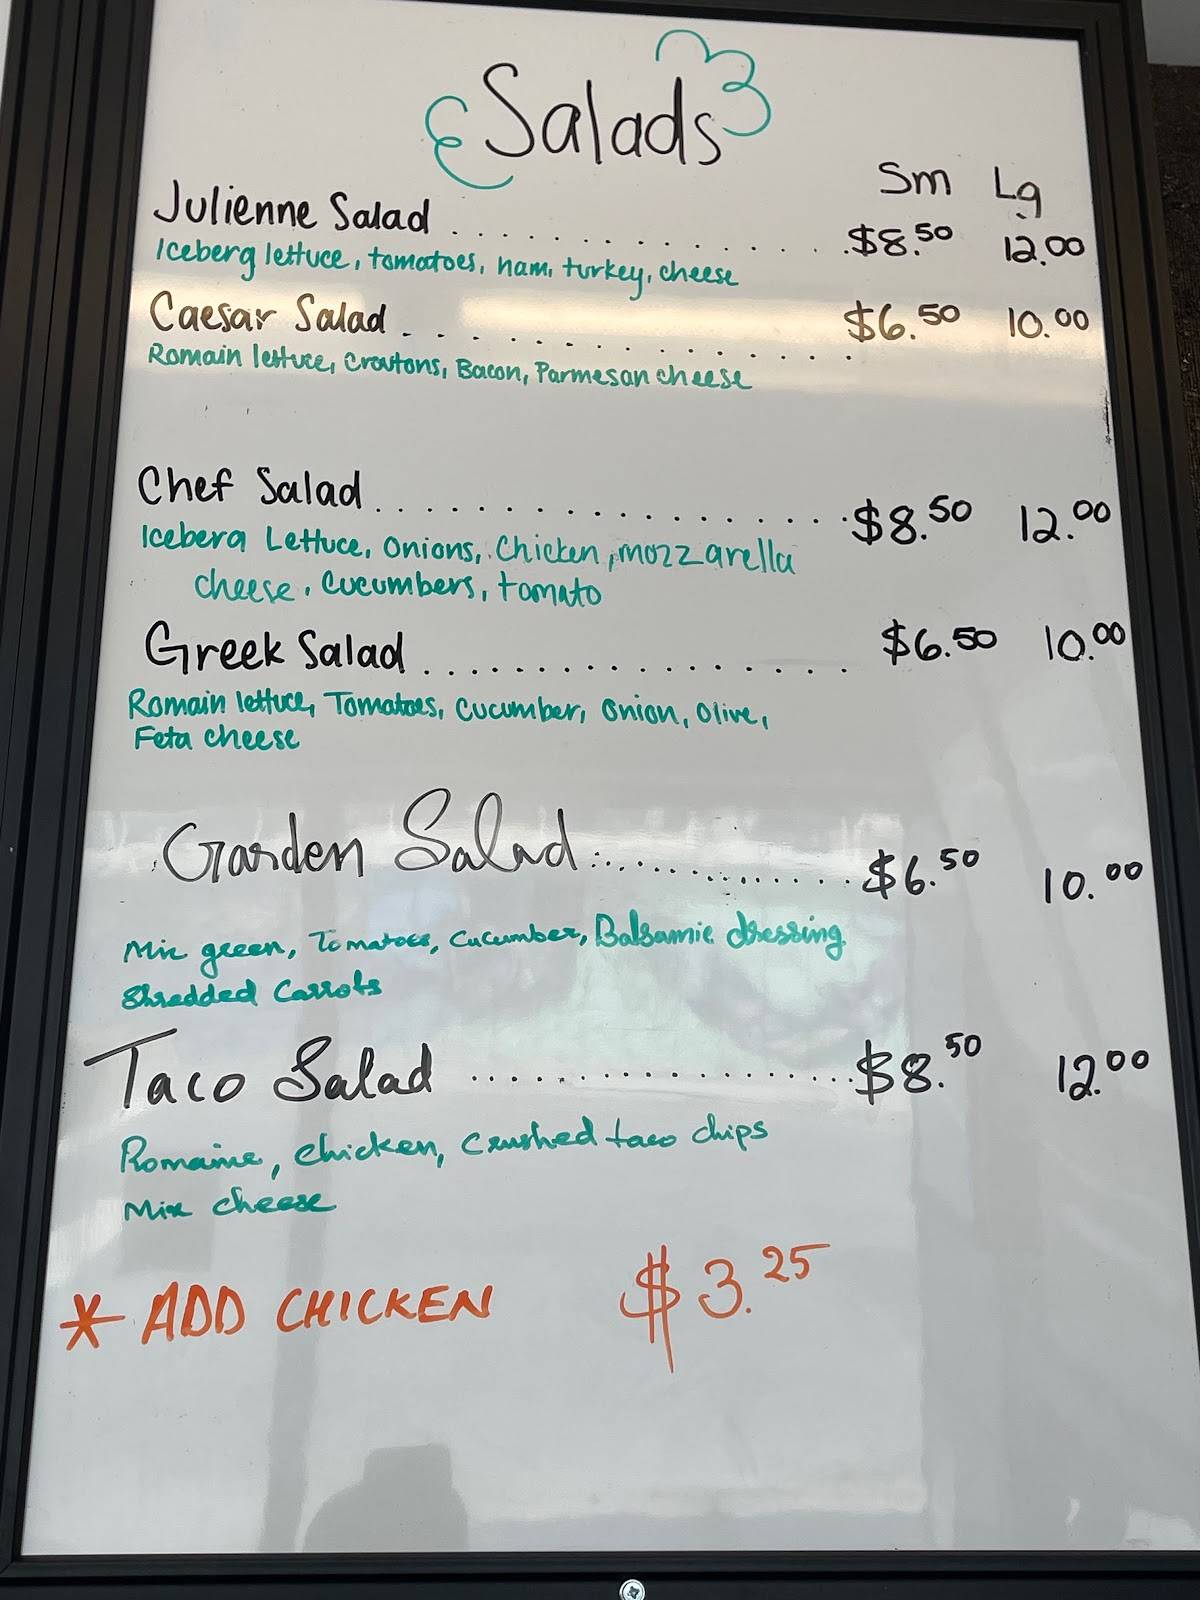 Salads
Sm Lg
Julienne Salad ................ $8.50 12.00
Iceberg lettuce, tomatoes, ham, turkey, cheese
Caesar Salad ................ $6.50 10.00
Romain lettuce, Croutons, Bacon, Parmesan cheese
Chef Salad ................ $8.50 12.00
Iceberg Lettuce, Onions, Chicken, mozzarella
cheese, Cucumbers, tomato
Greek Salad ................ $6.50 10.00
Romain lettuce, Tomatoes, Cucumber, Onion, Olive,
Feta cheese
Garden Salad ................ $6.50 10.00
Mix green, Tomatoes, Cucumber, Balsamic dressing
Shredded Carrots
Taco Salad ................ $8.50 12.00
Romaine, chicken, Crushed taco chips
Mix cheese
* ADD CHICKEN $3.25